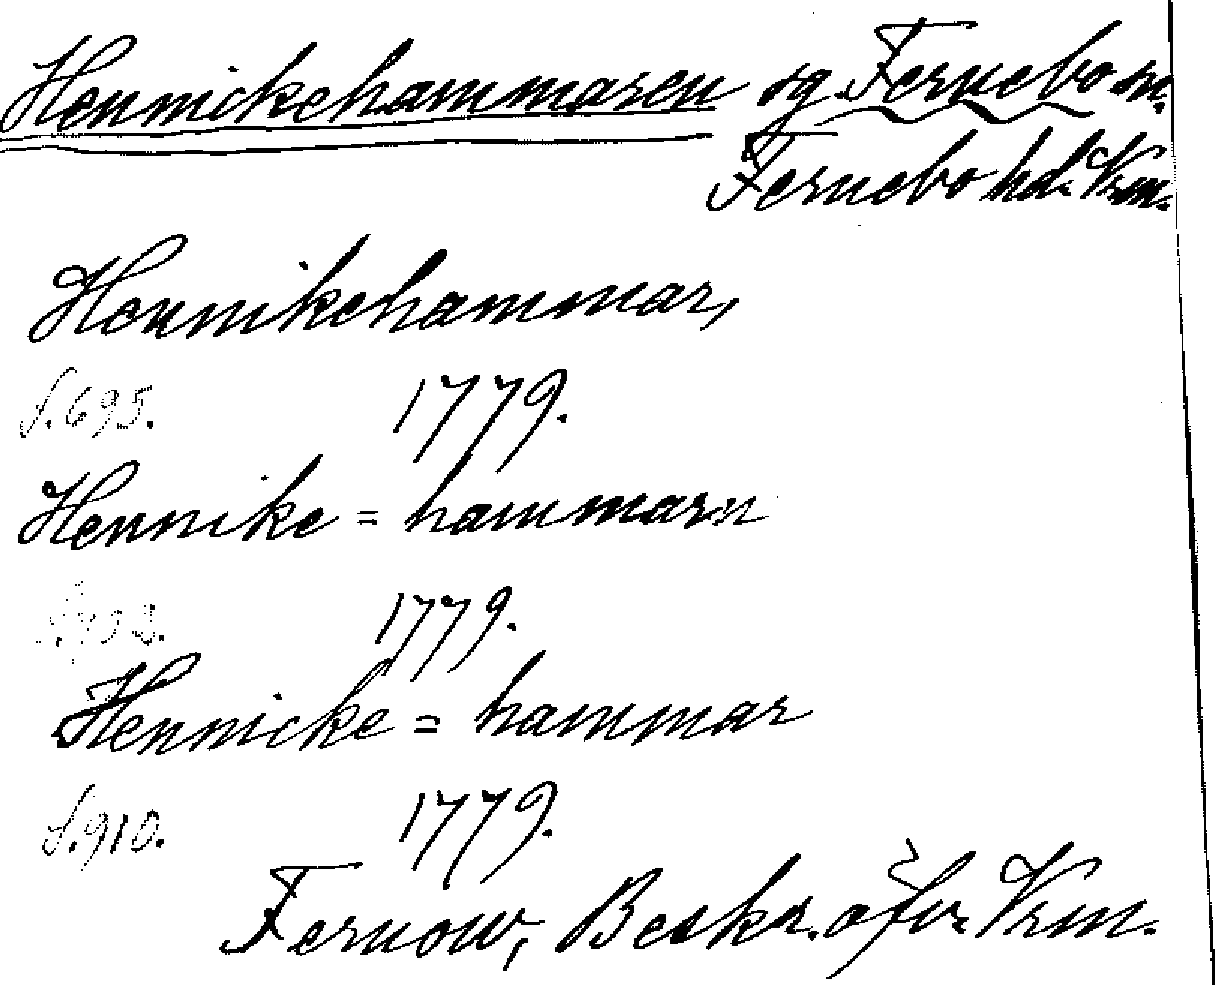 Hennickehammaren sg. Fernebo sn.
Fernebo hd. Vrm.
Hennikehammar,
S. 695. 1779.
Hennike=hammarn
1779.
Hennicke=hammar
S. 910. 1779.
Fernow, Beskr. öfv. Vrm.